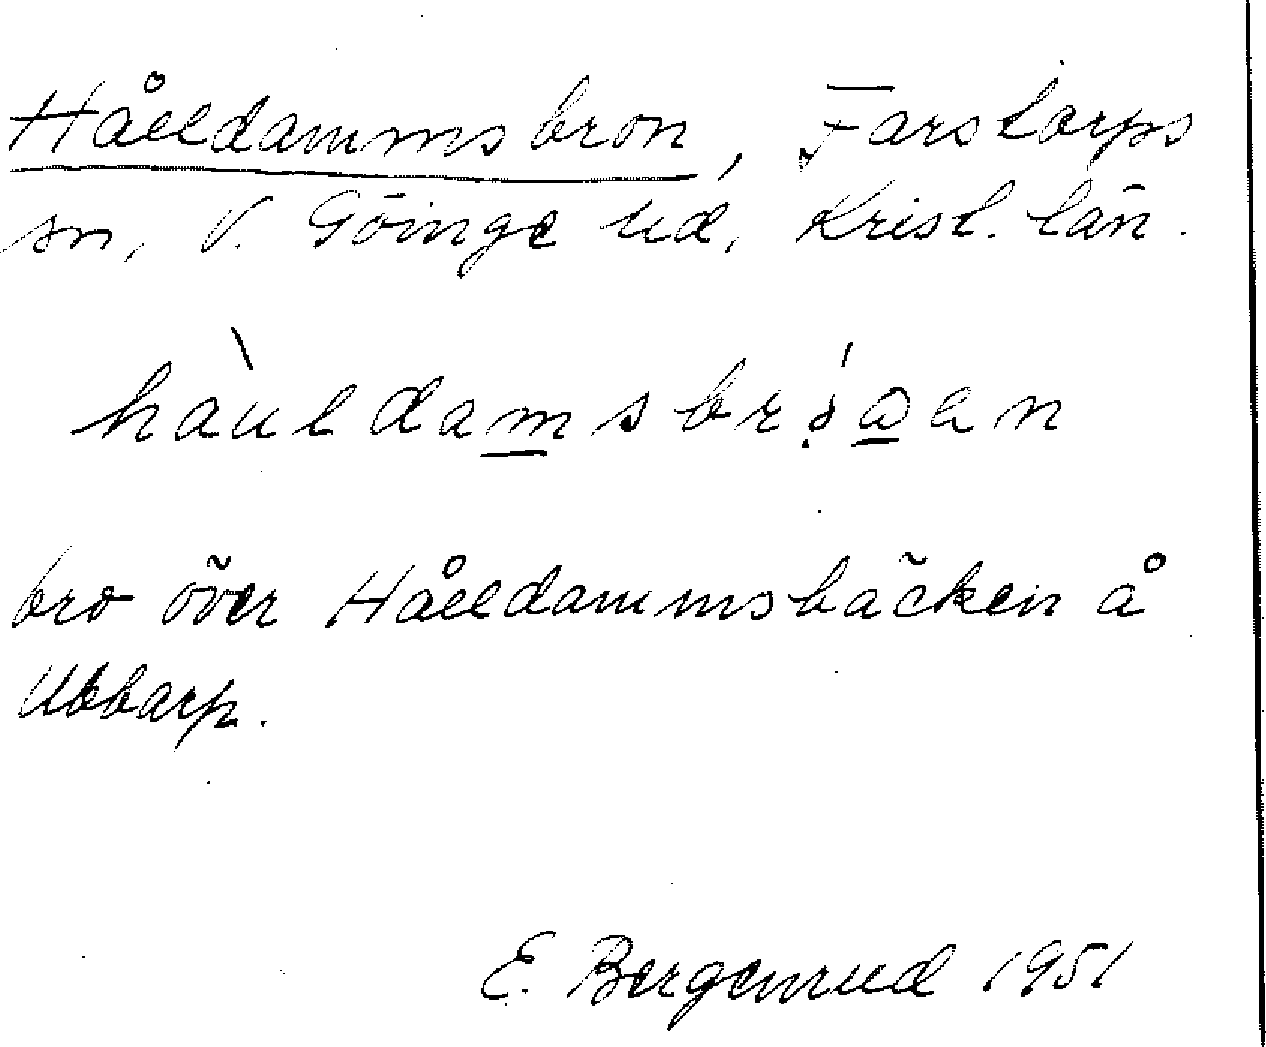 Hålldammsbron, Farstorps
sn, V. Göinge hd, Krist. län.
hàuldamsbrówan
bro över Hålldammsbäcken å
Ubbarp.
E. Bergenrud 1951